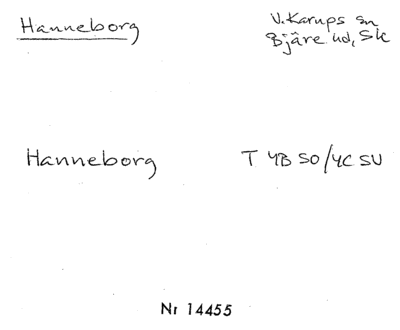 Hanneborg
V. Karups sn
Bjäre hd, Sk
Hanneborg
T 4B SO/4C SV
Nr 14455